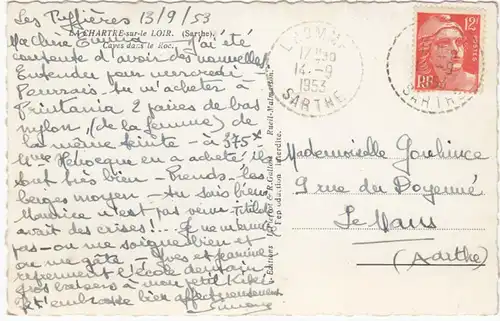 Les Buffières 13/9/53
LA CHARTRE-sur-le LOIR. (Sarthe).
Caves dans le Roc.
Ma Chère Emma J'ai été
contente d'avoir des nouvelles
Entendu pour mercredi
Pourrais-tu m'acheter à
Printania 2 paires de bas
nylon, (de la femme) de
la même teinte - à 375
en a acheté ils
sont très bien - Prends-les
moyen - tu sais bien
Maurice n'est pas venu
avait des crises!.. Je ne
pas - on me soigne bien et
on me gâte - Yves et Jeanine
reprennent l'école demain
gros baisers à mon petit Kiki
et t'embrasse bien affectueusement
Simone
Editions R. Guillot Rueil-Malmaison
Reproduction interdite.
LHOMME
14-9
1953
SARTHE
12F
RF
SARTHE
Mademoiselle
9 rue du Doyenné
Le Mans
(Sarthe)